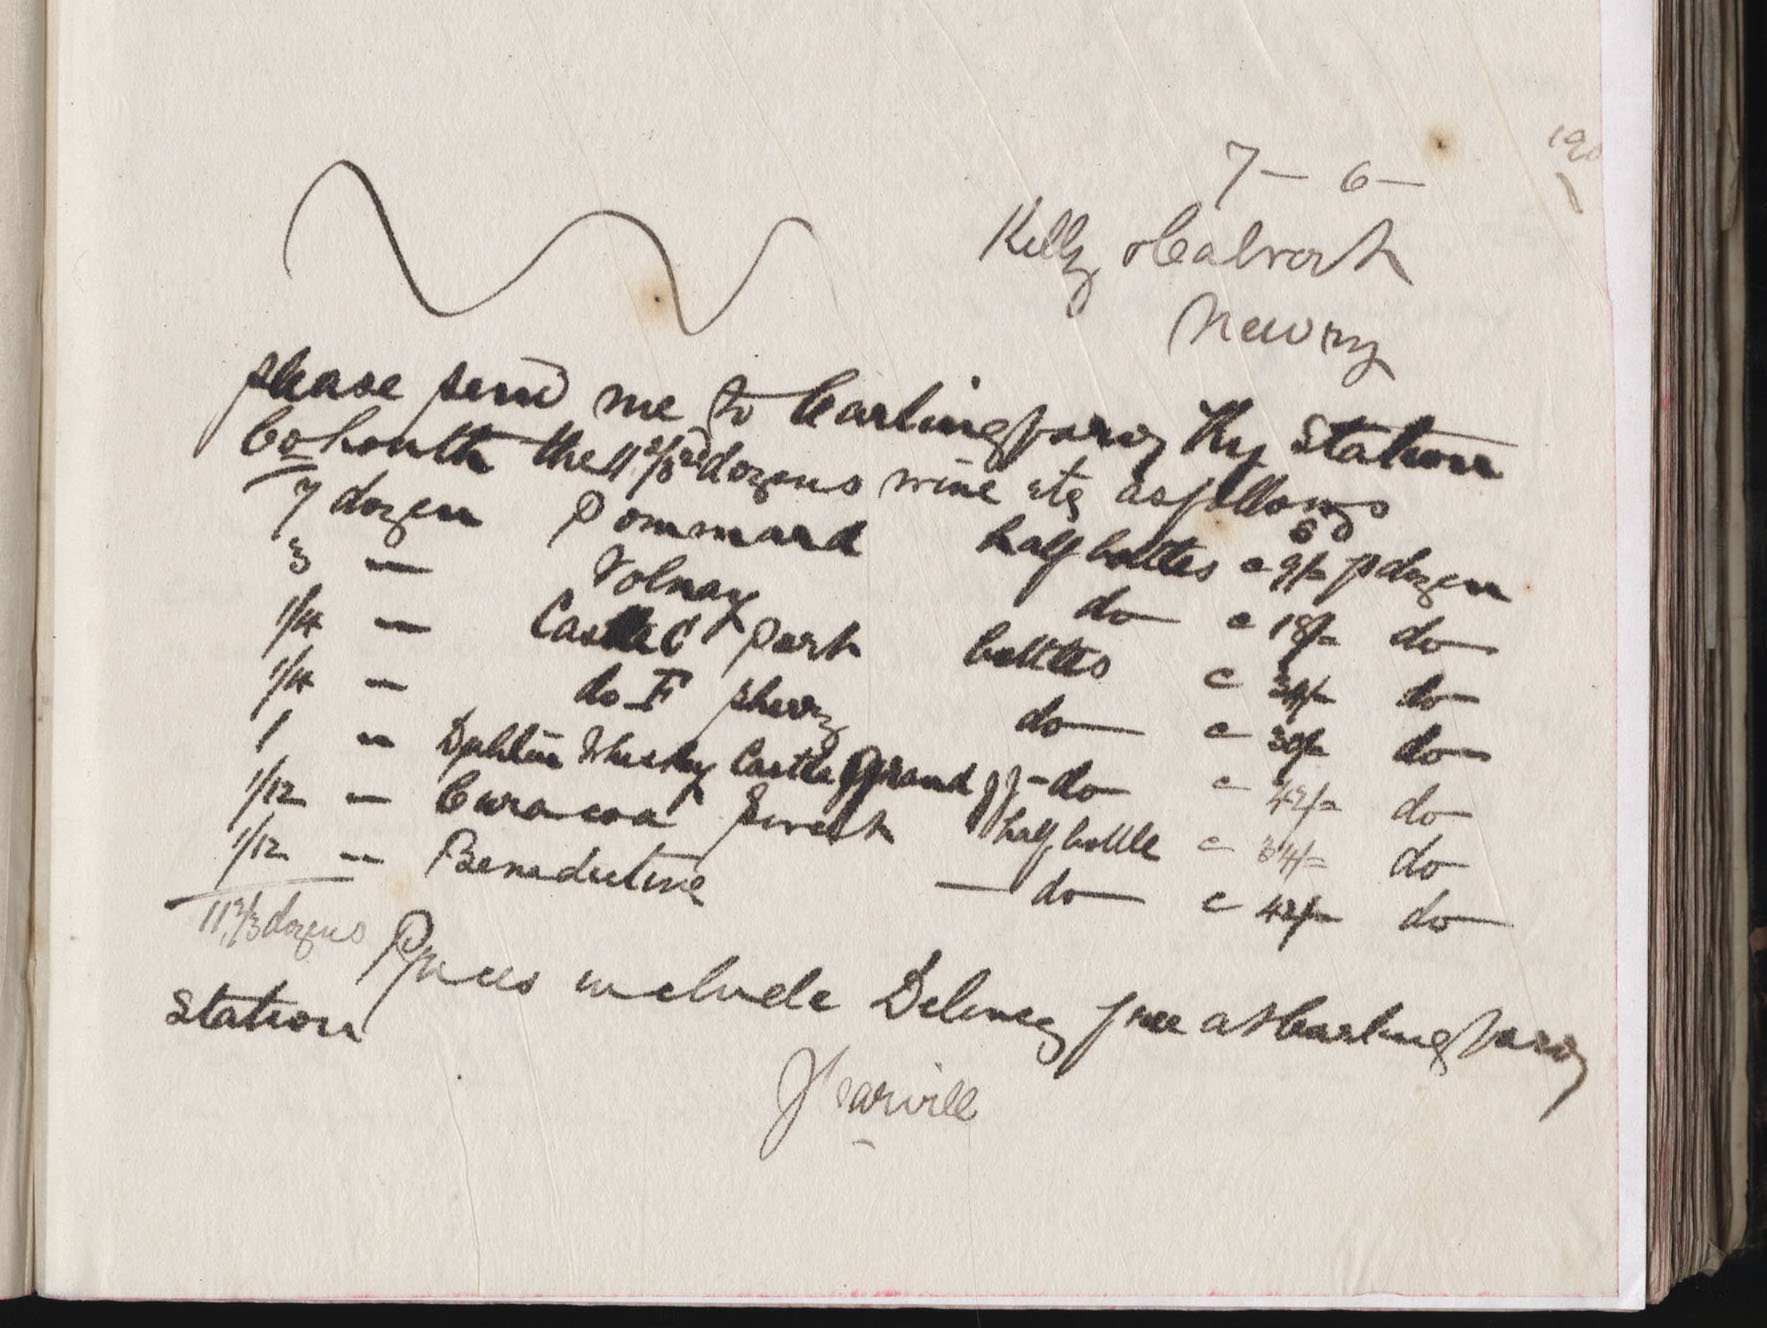 190
7 - 6 -
Kelly & Calvert
Newry
please send me to Carlingford Rly Station
Co Louth the 11 2/3rd dozens wine etc as follows
7 dozen Pommard half bottles @ 9/- p dozen
3 — Volnay do @ 18/- do
1/4 — Castle C Port bottles @ 34/- do
1/4 — do F Sherry do @ 30/- do
1 — Dublin Whisky Castle Grand do @ 42/- do
1/12 — Curacoa Sweet half bottle @ 34/- do
1/12 — Benedictine — do @ 42/- do
11 2/3 dozens
Prices include Delivery free at Carlingford
Station
J Carvill